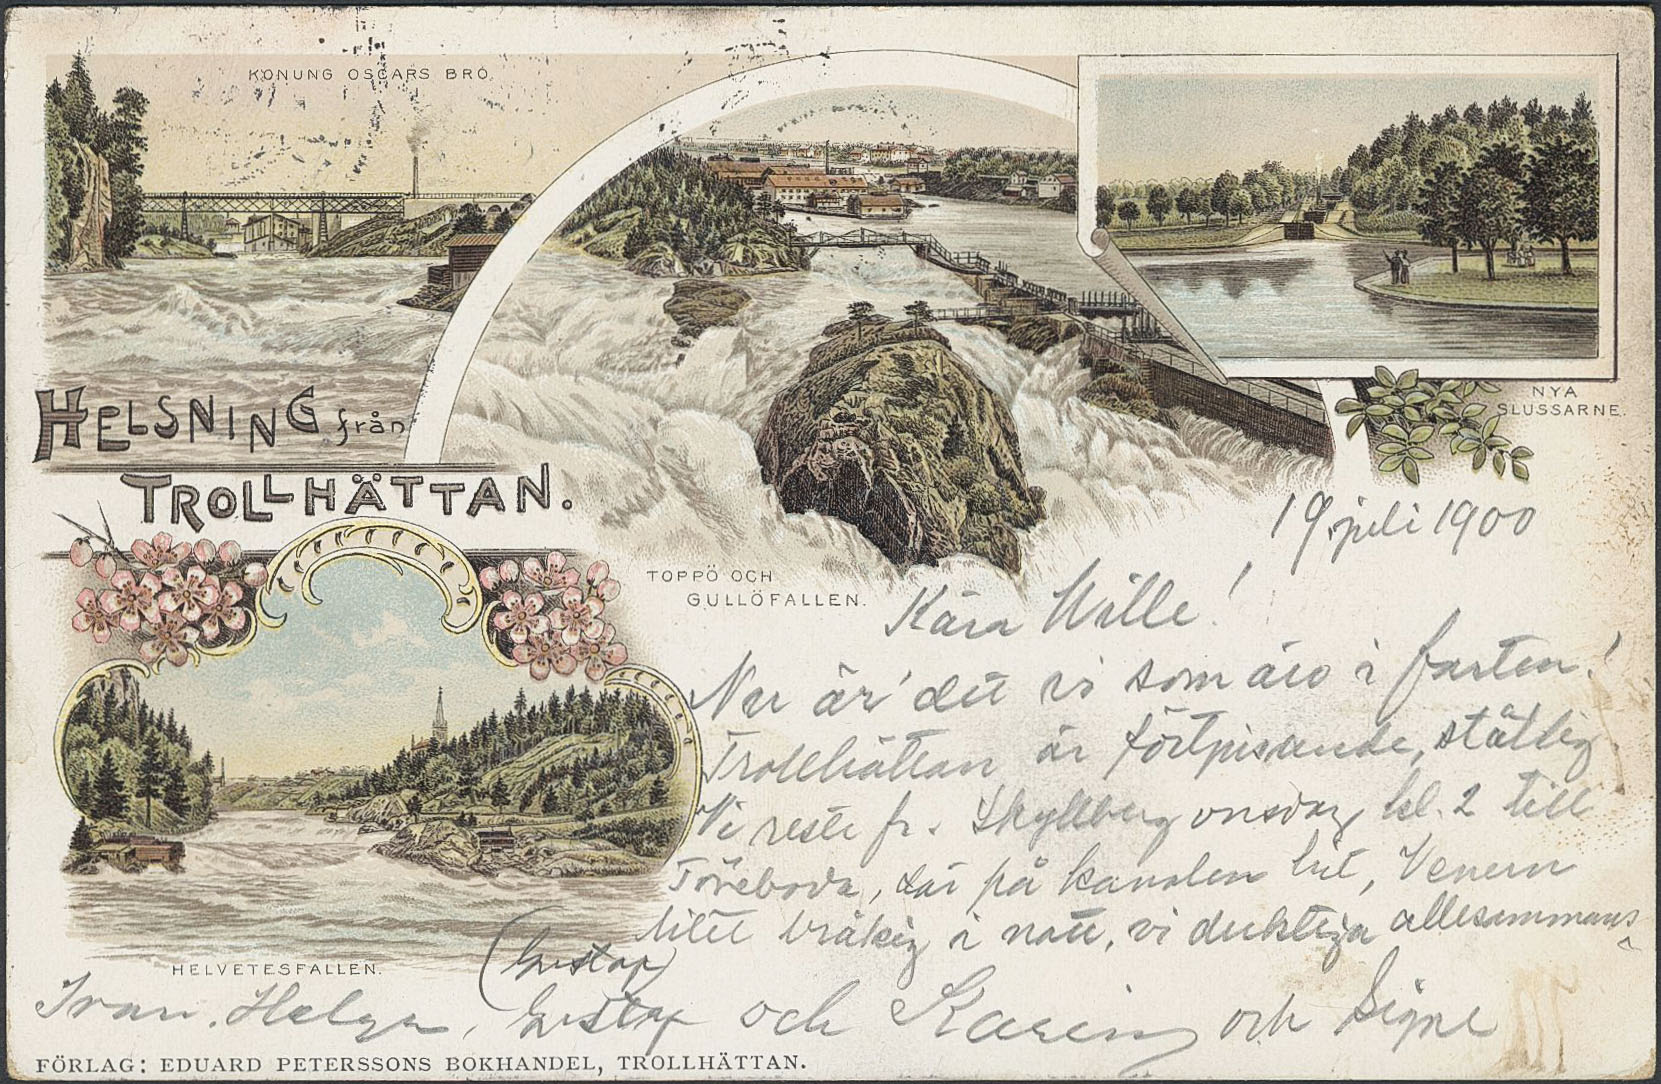 KONUNG OSCARS BRO.
HELSNING från
TROLLHÄTTAN.
NYA
SLUSSARNE.
TOPPÖ OCH
GULLÖFALLEN.
HELVETESFALLEN.
19 juli 1900
Kära Wille!
Nu är det vi som äro i farten!
Trollhättan är förtjusande, ståtlig
Vi reste fr. Skyllberg onsdag kl. 2 till
Töreboda, där på kanalen hit, Venern
litet bråkig i natt, vi duktiga allesammans
(Gustap)
Ivan, Helga, Gustaf och Karin och Signe
FÖRLAG: EDUARD PETERSSONS BOKHANDEL, TROLLHÄTTAN.